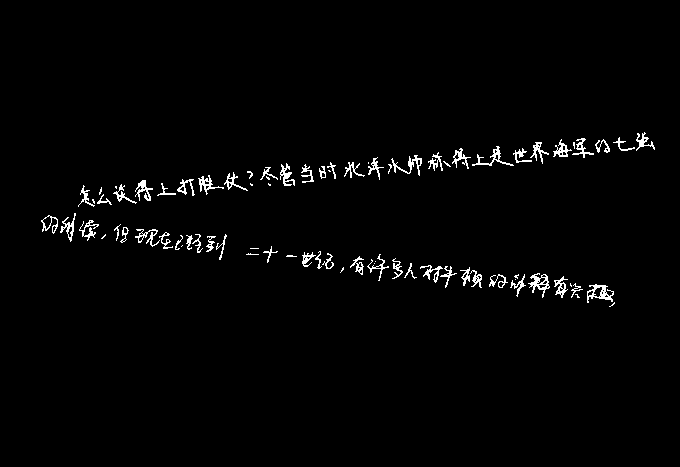 怎么谈得上打胜仗?尽管当时北洋水师称得上是世界海军的七强
的时候,但现在已经到 二十一世纪,有许多人对牛顿的解释有兴趣